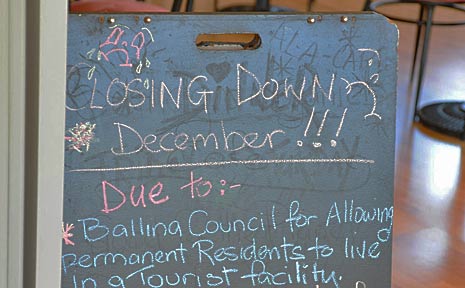 CLOSING DOWN
* December !!!
Due to:-
* Ballina Council for Allowing
permanent Residents to live
In a Tourist facility.